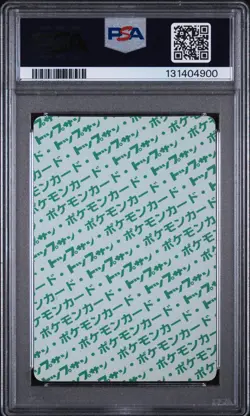 PSA
131404900
トップサン・ポケモンカード
ポケモンカード・トップサン
トップサン・ポケモンカード
ポケモンカード・トップサン
トップサン・ポケモンカード
ポケモンカード・トップサン